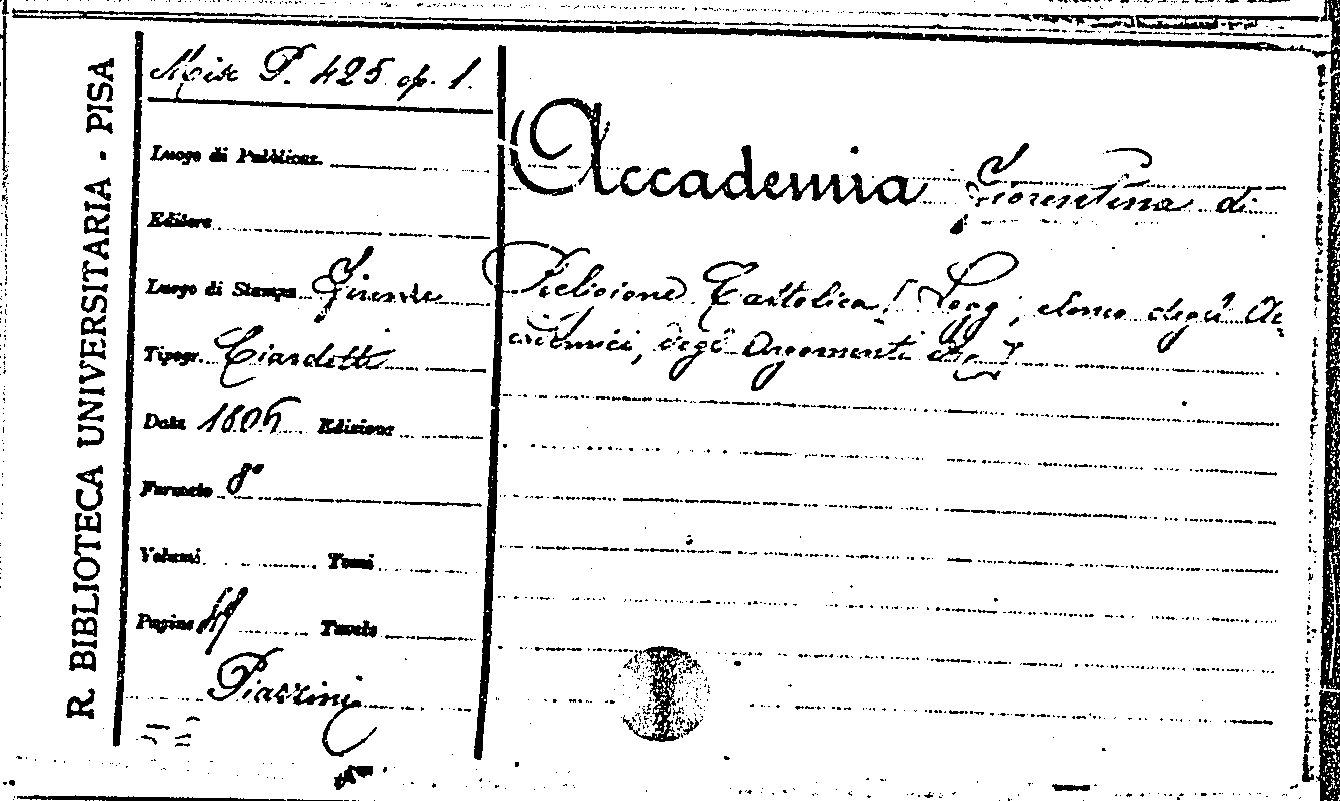 R. BIBLIOTECA UNIVERSITARIA - PISA
Misc P. 425 op. 1.
Luogo di Pubblicaz.
Editore
Luogo di Stampa Firenze
Tipogr. Ciardetti
Data 180 Edizione
Formato 8°
Volumi Tomi
Pagine Tavole
Piazzini
Accademia Fiorentina di
Religione Cattolica. [Leggi, elenco degli Ac=
cademici, degl' Argomenti etc.]